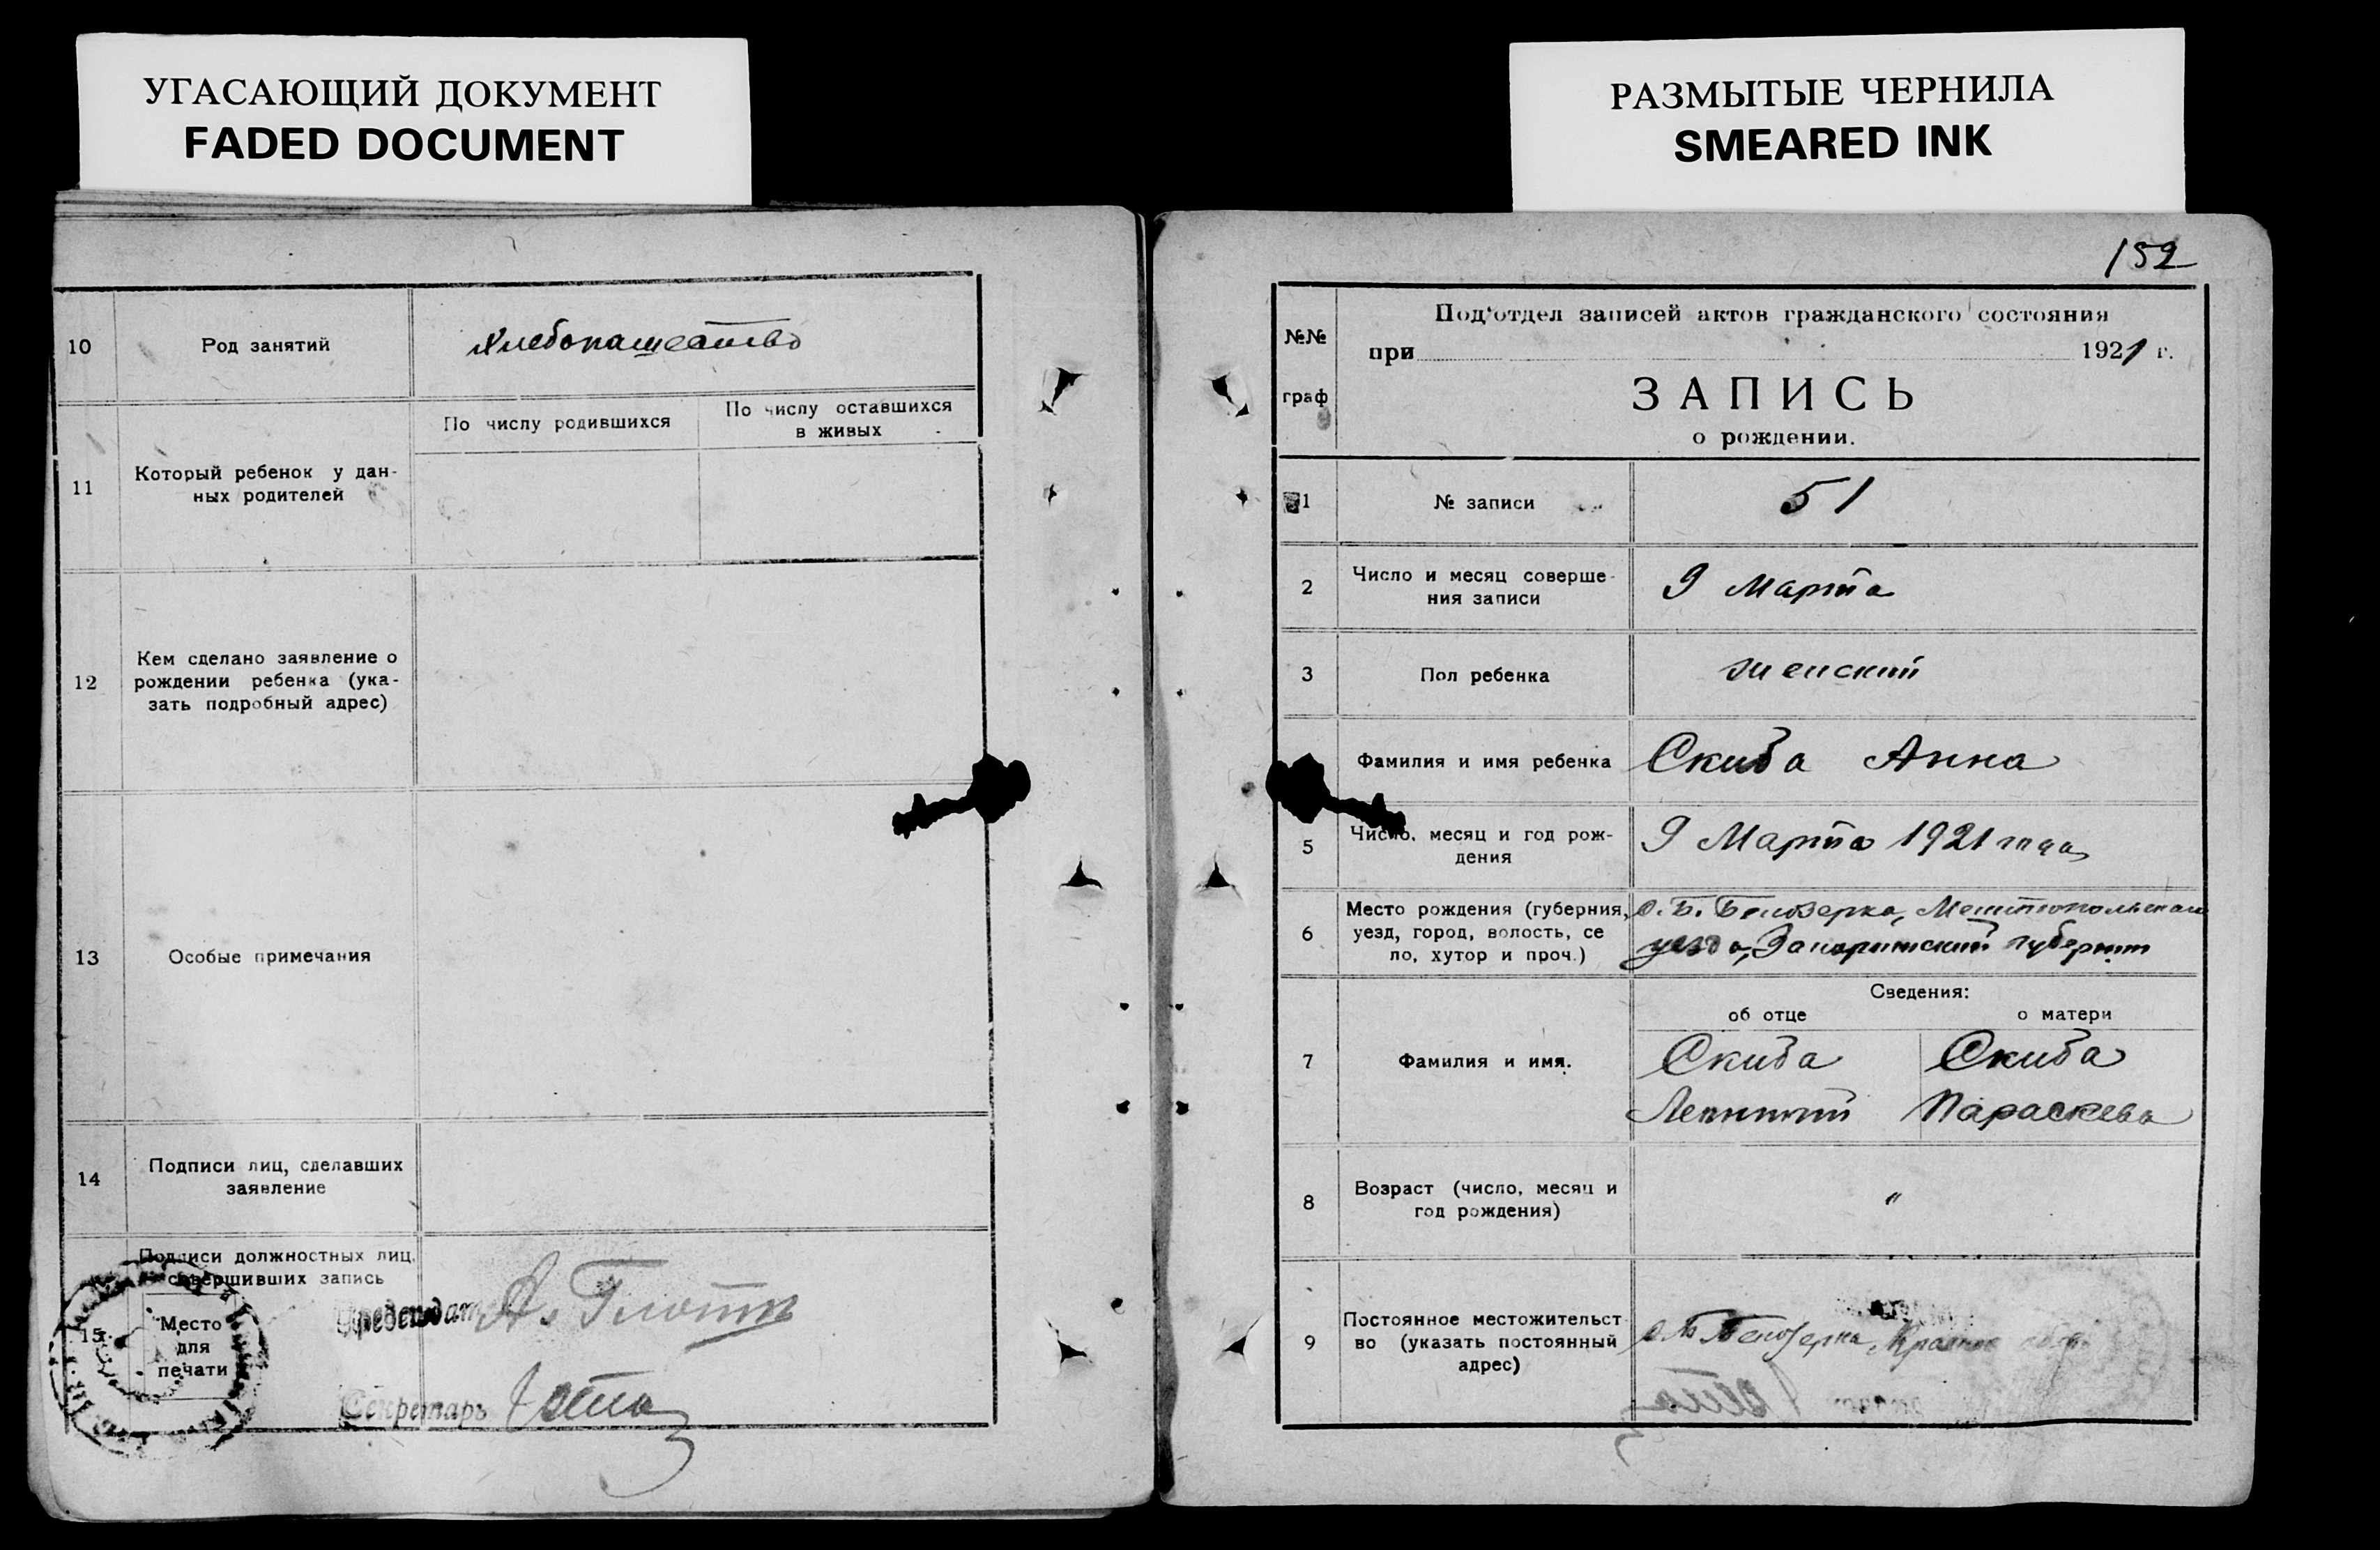 УГАСАЮЩИЙ ДОКУМЕНТ
FADED DOCUMENT
РАЗМЫТЫЕ ЧЕРНИЛА
SMEARED INK
10
Род занятий
Хлебопашество
11
Который ребенок у дан-
ных родителей
По числу родившихся
По числу оставшихся
в живых
12
Кем сделано заявление о
рождении ребенка (ука-
зать подробный адрес)
13
Особые примечания
14
Подписи лиц, сделавших
заявление
15
Подписи должностных лиц,
совершивших запись
Место
для
печати
Председат
А.
Секретарь
152
№№
граф
Под'отдел записей актов гражданского состояния
при 1921 г.
ЗАПИСЬ
о рождении.
1
№ записи
51
2
Число и месяц соверше-
ния записи
9 Марта
3
Пол ребенка
женский
Фамилия и имя ребенка
Скиба Анна
5
Число, месяц и год рож-
дения
9 Марта 1921 года
6
Место рождения (губерния,
уезд, город, волость, се
ло, хутор и проч.)
с. Б. Белозерка, Мелитопольского
уезда, губернии
Сведения:
об отце
о матери
7
Фамилия и имя.
Скиба
Скиба
Параскева
8
Возраст (число, месяц и
год рождения)
"
9
Постоянное местожительст
во (указать постоянный
адрес)
с. Б. Белозерка,